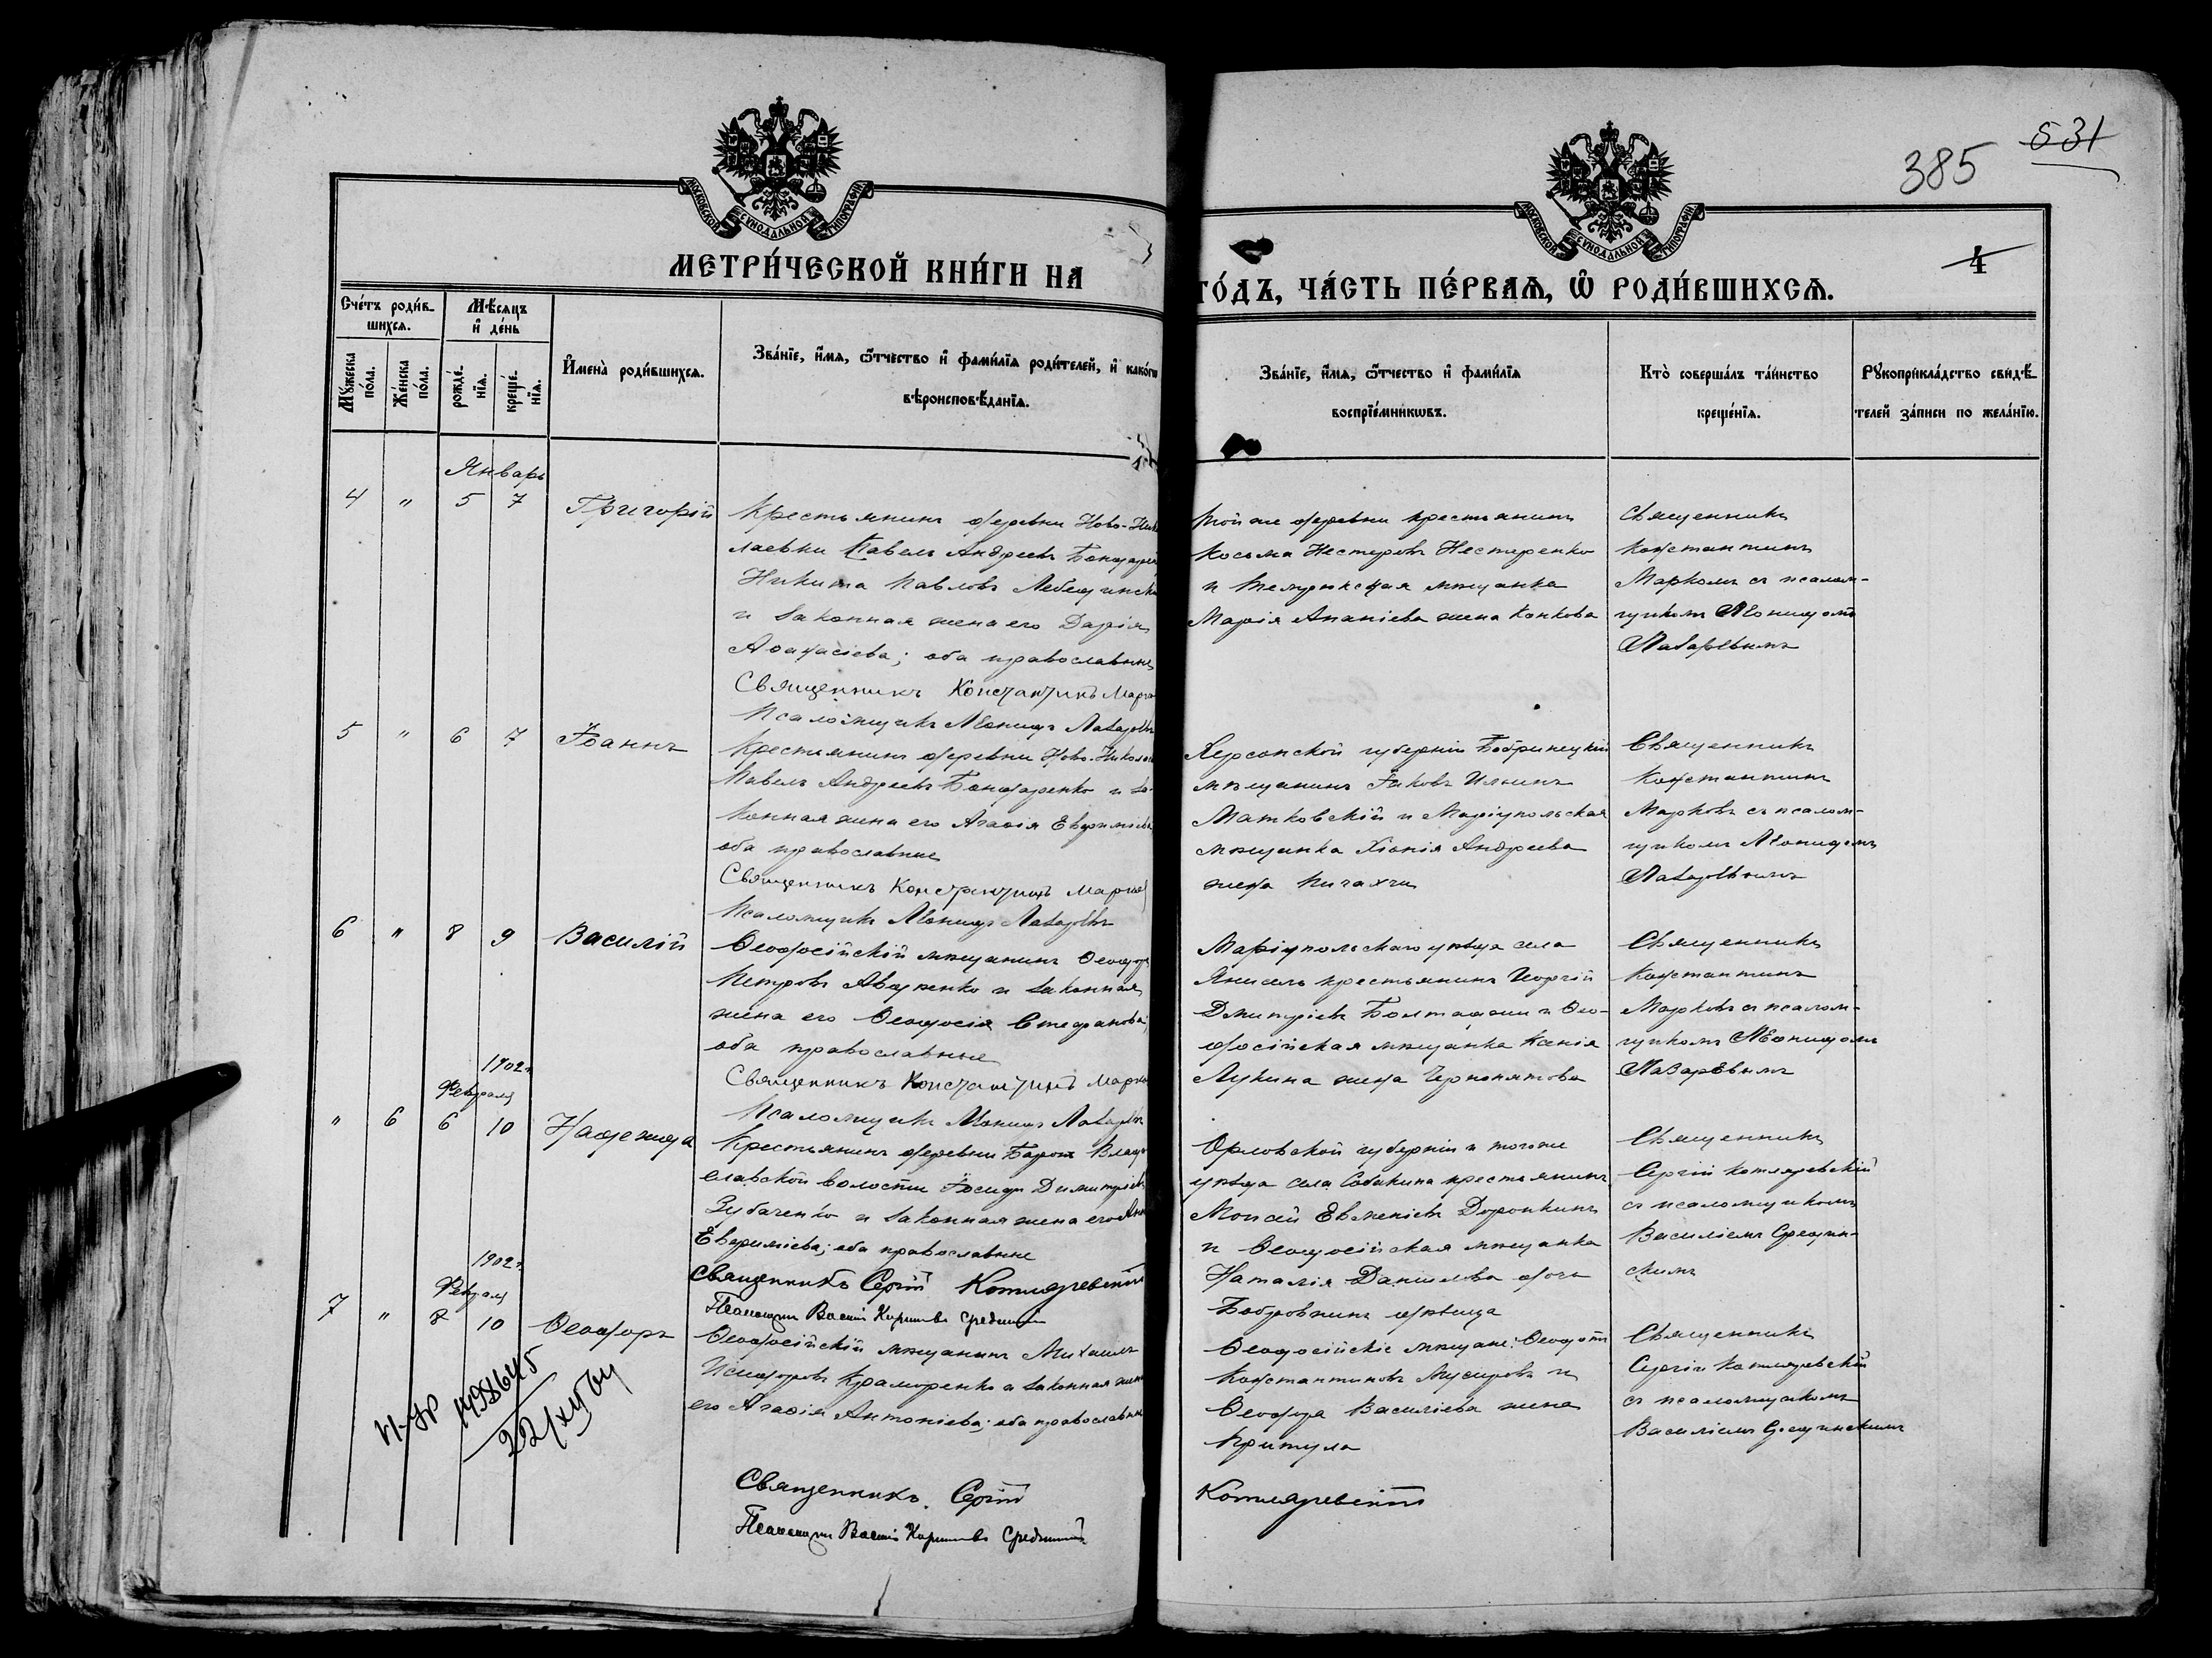 385
531
4
МОСКОВСКОЙ СѴНОДАЛЬНОЙ ТИПОГРАФІИ
МОСКОВСКОЙ СѴНОДАЛЬНОЙ ТИПОГРАФІИ
МЕТРИ́ЧЕСКОЙ КНИ́ГИ НА
ГО́ДЪ, ЧА́СТЬ ПЕ́РВАѦ, Ѡ҆ РОДИ́ВШИХСѦ.
Сче́тъ роди́в-
шихсѧ.
Мꙋ́жеска по́ла.
Же́нска по́ла.
Мѣ́сѧцъ
и҆ де́нь
рожде́-
нїѧ.
креще́-
нїѧ.
И҆мена̀ роди́вшихсѧ.
Зва́нїе, и҆́мѧ, ѻ҆́тчество и҆ фами́лїѧ роди́телей, и҆ како́гѡ
вѣроисповѣ́данїѧ.
Зва́нїе, и҆́мѧ, ѻ҆́тчество и҆ фами́лїѧ
воспрїе́мникѡвъ.
Кто̀ соверша́лъ та́инство
креще́нїѧ.
Рꙋкоприкла́дство свидѣ́-
телей за́писи по жела́нїю.
Январь
4 " 5 7 Григорій
Крестьянинъ деревни Ново-Нико
лаевки
Никита Павловъ Лебединск
и законная жена его Дарія
Аѳанасіева; оба православные
Священникъ Константинъ Марко
Псаломщикъ Леонидъ Лазаревъ
той же деревни крестьянинъ
Косьма Нестеровъ Нестеренко
и Темрюкская мѣщанка
Марія Ананіева жена Конкова
Священникъ
Константинъ
Марковъ съ псалом-
щикомъ Леонидомъ
Лазаревымъ
5 " 6 7 Іоаннъ
Крестьянинъ деревни Ново-Николае
Павелъ Андреевъ Бондаренко и за-
конная жена его Агаѳія Евфиміева
оба православные
Священникъ Константинъ Марков
Псаломщикъ Леонидъ Лазаревъ
Херсонской губерніи Бобринецкій
мѣщанинъ Іаковъ Ильинъ
Матковскій и Маріупольская
мѣщанка Хіонія Андреева
жена
Священникъ
Константинъ
Марковъ съ псалом-
щикомъ Леонидомъ
Лазаревымъ
6 " 8 9 Василій
Ѳеодосійскій мѣщанинъ Ѳеодоръ
Петровъ Авдѣенко и законная
жена его Ѳеодосія Стефанова;
оба православные
Священникъ Константинъ Марко
Псаломщикъ Леонидъ Лазаревъ
Маріупольскаго уѣзда села
Янисоль крестьянинъ Георгій
Дмитріевъ и Ѳео-
досійская мѣщанка Ксенія
Лукина жена
Священникъ
Константинъ
Марковъ съ псалом-
щикомъ Леонидомъ
Лазаревымъ
1902 г.
Февраля
" 6 6 10 Надежда
Крестьянинъ деревни Владо
славской волости Іосифъ Димитріев
Зубаченко и законная жена его Анн
Евфиміева; оба православные
Священникъ Сергій Котляревскій
Псаломщикъ Василій Кирилловъ Срединскій
Орловской губерніи и того же
уѣзда села Собакина крестьянинъ
Евменіевъ Доронкинъ
и Ѳеодосійская мѣщанка
Наталія Даніилова дочь
Бобровникъ дѣвица
Священникъ
Сергій Котляревскій
съ псаломщикомъ
Василіемъ Средин-
скимъ
1902 г.
Февраля
7 " 8 10 Ѳеодоръ
Ѳеодосійскій мѣщанинъ Михаилъ
Исидоровъ Краморенко и законная жена
его Агаѳія Антоніева; оба православные
Ѳеодосійскіе мѣщане: Ѳеодотъ
Константиновъ и
Ѳеодора Василіева жена
Притула
Священникъ
Сергій Котляревскій
съ псаломщикомъ
Василіемъ Срединскимъ
Священникъ Сергій Котляревскій
Псаломщикъ Василій Кирилловъ Срединскій
1498645
22/XII 64